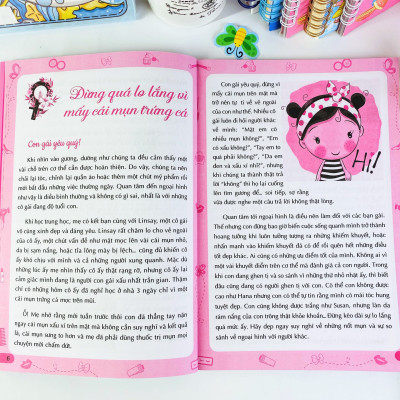 Đừng quá lo lắng vì
mấy cái mụn trứng cá
Con gái yêu quý!
Khi nhìn vào gương, dường như chúng ta đều cảm thấy một
vài chỗ trên cơ thể cần được hoàn thiện. Do vậy, chúng ta nên
chải lại tóc, chỉnh lại quần áo hoặc thêm một chút mỹ phẩm rồi
mới bắt đầu những việc thường ngày. Quan tâm đến ngoại hình
như vậy là điều bình thường và không có gì sai, nhất là với những
cô gái đang độ tuổi con.
Khi học trung học, mẹ có kết bạn cùng với Linsay, một cô gái
vô cùng xinh đẹp và đáng yêu. Linsay rất chăm lo cho vẻ ngoài
của cô ấy, một chút vấn đề nhỏ như mặt mọc lên vài cái mụn nhỏ,
da bị sạm nắng, hoặc tỉa lông mày bị lệch... cũng đủ khiến cô
ấy khó chịu với mình và cả những người xung quanh. Mặc dù
những lúc ấy mẹ nhìn thấy cô ấy thật rạng rỡ, nhưng cô ấy lại
cảm giác mình đang là người con gái xấu nhất trần gian. Thậm
chí có những hôm cô ấy đã nghỉ học ở nhà 3 ngày chỉ vì một
cái mụn trứng cá mọc trên mũi.
Ồ! Mẹ nhớ rằng mới tuần trước thôi con đã thẳng tay nặn
ngay cái mụn xấu xí trên mặt mà không cần suy nghĩ và kết quả
là, cái mụn sưng to hơn và mẹ đã phải dùng thuốc trị mụn mọi
chuyện mới chấm dứt.
6
Con gái yêu quý, đừng vì
mấy cái mụn trên mặt mà
trở nên tự ti về vẻ ngoài
của con như thế. Nhiều cô
gái luôn đi hỏi người khác
về mình: "Mặt em có
nhiều mụn không?", "Em
có xấu không?", "Tay em to
quá phải không?", "Da em
đen và xấu xí nhỉ?", nhưng
khi chúng ta thành thật trả
lời "không" thì họ lại cuống
lên tìm gương để... soi tiếp, sợ rằng
vừa được nghe một câu trả lời không thật lòng.
Hi!
Quan tâm tới ngoại hình là điều nên làm đối với các bạn gái.
Thế nhưng con đừng bao giờ biến cuộc sống quanh mình trở thành
hoang tưởng khi luôn tưởng tượng ra những khiếm khuyết, hoặc
nhấn mạnh vào khiếm khuyết đã có để rồi quên hết những điều
tốt đẹp khác. Ai cũng có những ưu điểm tốt của mình. Không ai vì
một vài khuyết điểm trên cơ thể mà đánh giá cả con người. Trong
khi con đang ghen tị và so sánh vì những thứ nhỏ nhặt ấy, thì biết
đâu cũng đang có người ghen tị với con. Có thể con không được
cao như Hana nhưng con có thể tự tin rằng mình có mái tóc hung
tuyệt đẹp. Con cũng không được trắng như Susan, nhưng làn da
rám nắng của con trông thật khỏe khoắn... Đừng kéo dài sự lo lắng
quá mức ấy. Hãy dẹp ngay suy nghĩ về những nốt mụn và sự so
sánh về ngoại hình với người khác.